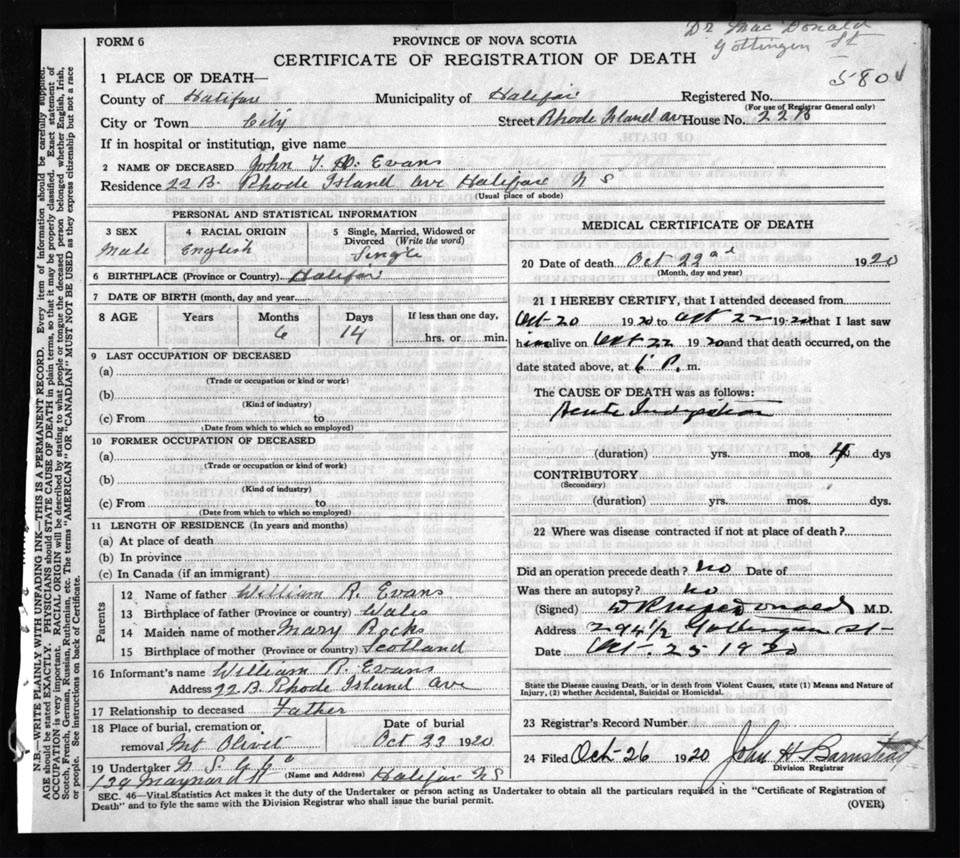 Dr MacDonald
Gottingen St
FORM 6
PROVINCE OF NOVA SCOTIA
CERTIFICATE OF REGISTRATION OF DEATH
1 PLACE OF DEATH—
5804
County of Halifax Municipality of Halifax Registered No.
(For use of Registrar General only)
City or Town City Street Rhode Island av House No. 22B
If in hospital or institution, give name
2 NAME OF DECEASED John T. Evans
Residence 22 B. Rhode Island Ave Halifax N S
(Usual place of abode)
PERSONAL AND STATISTICAL INFORMATION
3 SEX 4 RACIAL ORIGIN 5 Single, Married, Widowed or Divorced (Write the word)
Male English Single
6 BIRTHPLACE (Province or Country) Halifax
7 DATE OF BIRTH (month, day and year
8 AGE Years Months Days If less than one day,
6 14 hrs. or min.
9 LAST OCCUPATION OF DECEASED
(a)
(Trade or occupation or kind or work)
(b)
(Kind of industry)
(c) From to
(Date from which to which so employed)
10 FORMER OCCUPATION OF DECEASED
(a)
(Trade or occupation or kind of work)
(b)
(Kind of industry)
(c) From to
(Date from which to which so employed)
11 LENGTH OF RESIDENCE (In years and months)
(a) At place of death
(b) In province
(c) In Canada (if an immigrant)
Parents
12 Name of father William R. Evans
13 Birthplace of father (Province or country) Wales
14 Maiden name of mother Mary Rocks
15 Birthplace of mother (Province or country) Scotland
16 Informant's name William R. Evans
Address 22 B. Rhode Island Ave
17 Relationship to deceased Father
18 Place of burial, cremation or removal Mt Olivet
Date of burial
Oct 23 1920
19 Undertaker N. S. U Co
139 Maynard St (Name and Address) Halifax N S
MEDICAL CERTIFICATE OF DEATH
20 Date of death Oct 22nd 1920
(Month, day and year)
21 I HEREBY CERTIFY, that I attended deceased from
Oct 20 1920 to Oct 22 1920 that I last saw
him alive on Oct 22 1920 and that death occurred, on
date stated above, at 6 P. m.
The CAUSE OF DEATH was as follows:
Acute Indigestion
(duration) yrs. mos. 4 dys
CONTRIBUTORY
(Secondary)
(duration) yrs. mos. dys.
22 Where was disease contracted if not at place of death?
Did an operation precede death? no Date of
Was there an autopsy? no
(Signed) M.D.
Address 294 1/2 Gottingen St
Date Oct. 25 1920
State the Disease causing Death, or in death from Violent Causes, state (1) Means and Nature of
Injury, (2) whether Accidental, Suicidal or Homicidal.
23 Registrar's Record Number
24 Filed Oct 26 1920 John H Barnstead
Division Registrar
SEC. 46—Vital Statistics Act makes it the duty of the Undertaker or person acting as Undertaker to obtain all the particulars required in the "Certificate of Registration of
Death" and to fyle the same with the Division Registrar who shall issue the burial permit.
(OVER)
N.B.—WRITE PLAINLY WITH UNFADING INK—THIS IS A PERMANENT RECORD. Every item of information should be carefully supplied.
AGE should be stated EXACTLY. PHYSICIANS should STATE CAUSE OF DEATH in plain terms, so that it may be properly classified. Exact statement of
OCCUPATION is very important. RACIAL ORIGIN will be described by stating to what people or tongue the deceased person belonged whether English, Irish,
Scotch, French, German, Russian, Ruthenian, etc. The terms "AMERICAN" OR "CANADIAN" MUST NOT BE USED as they express citizenship but not a race
or people. See instructions on back of Certificate.